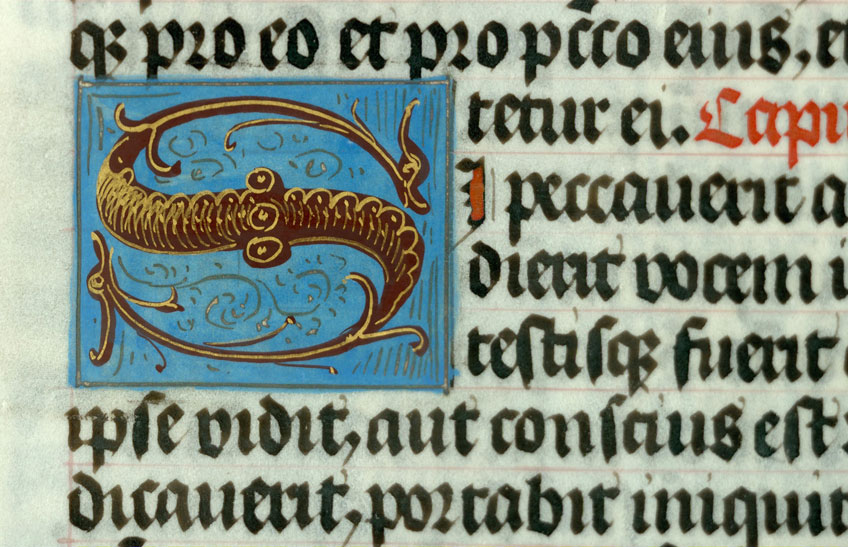 q; pro eo et pro pccō eius, et
tetur ei. Capi
S I peccauerit a
dierit vocem i
testisq; fuerit
ipse vidit, aut conscius est
dicauerit, portabit iniquit